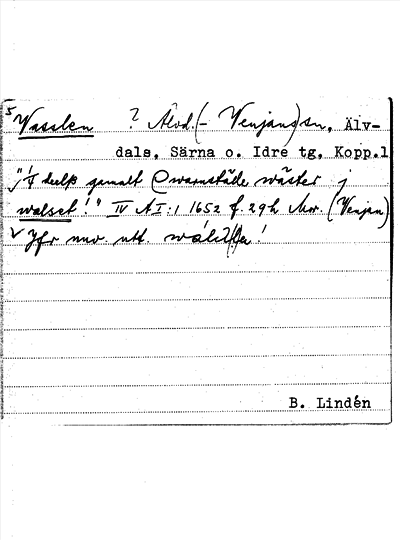 5 Vaselen ? Älvd. (- Venjans) sn, Älv-
dals, Särna o. Idre tg, Kopp.l
"1/4 deelß gamalt Qwarnställe wäster j
walset!" IV A I:1 1652 f. 29 h Mor. (Venjan)
Jfr nuv. utt.
B. Lindén